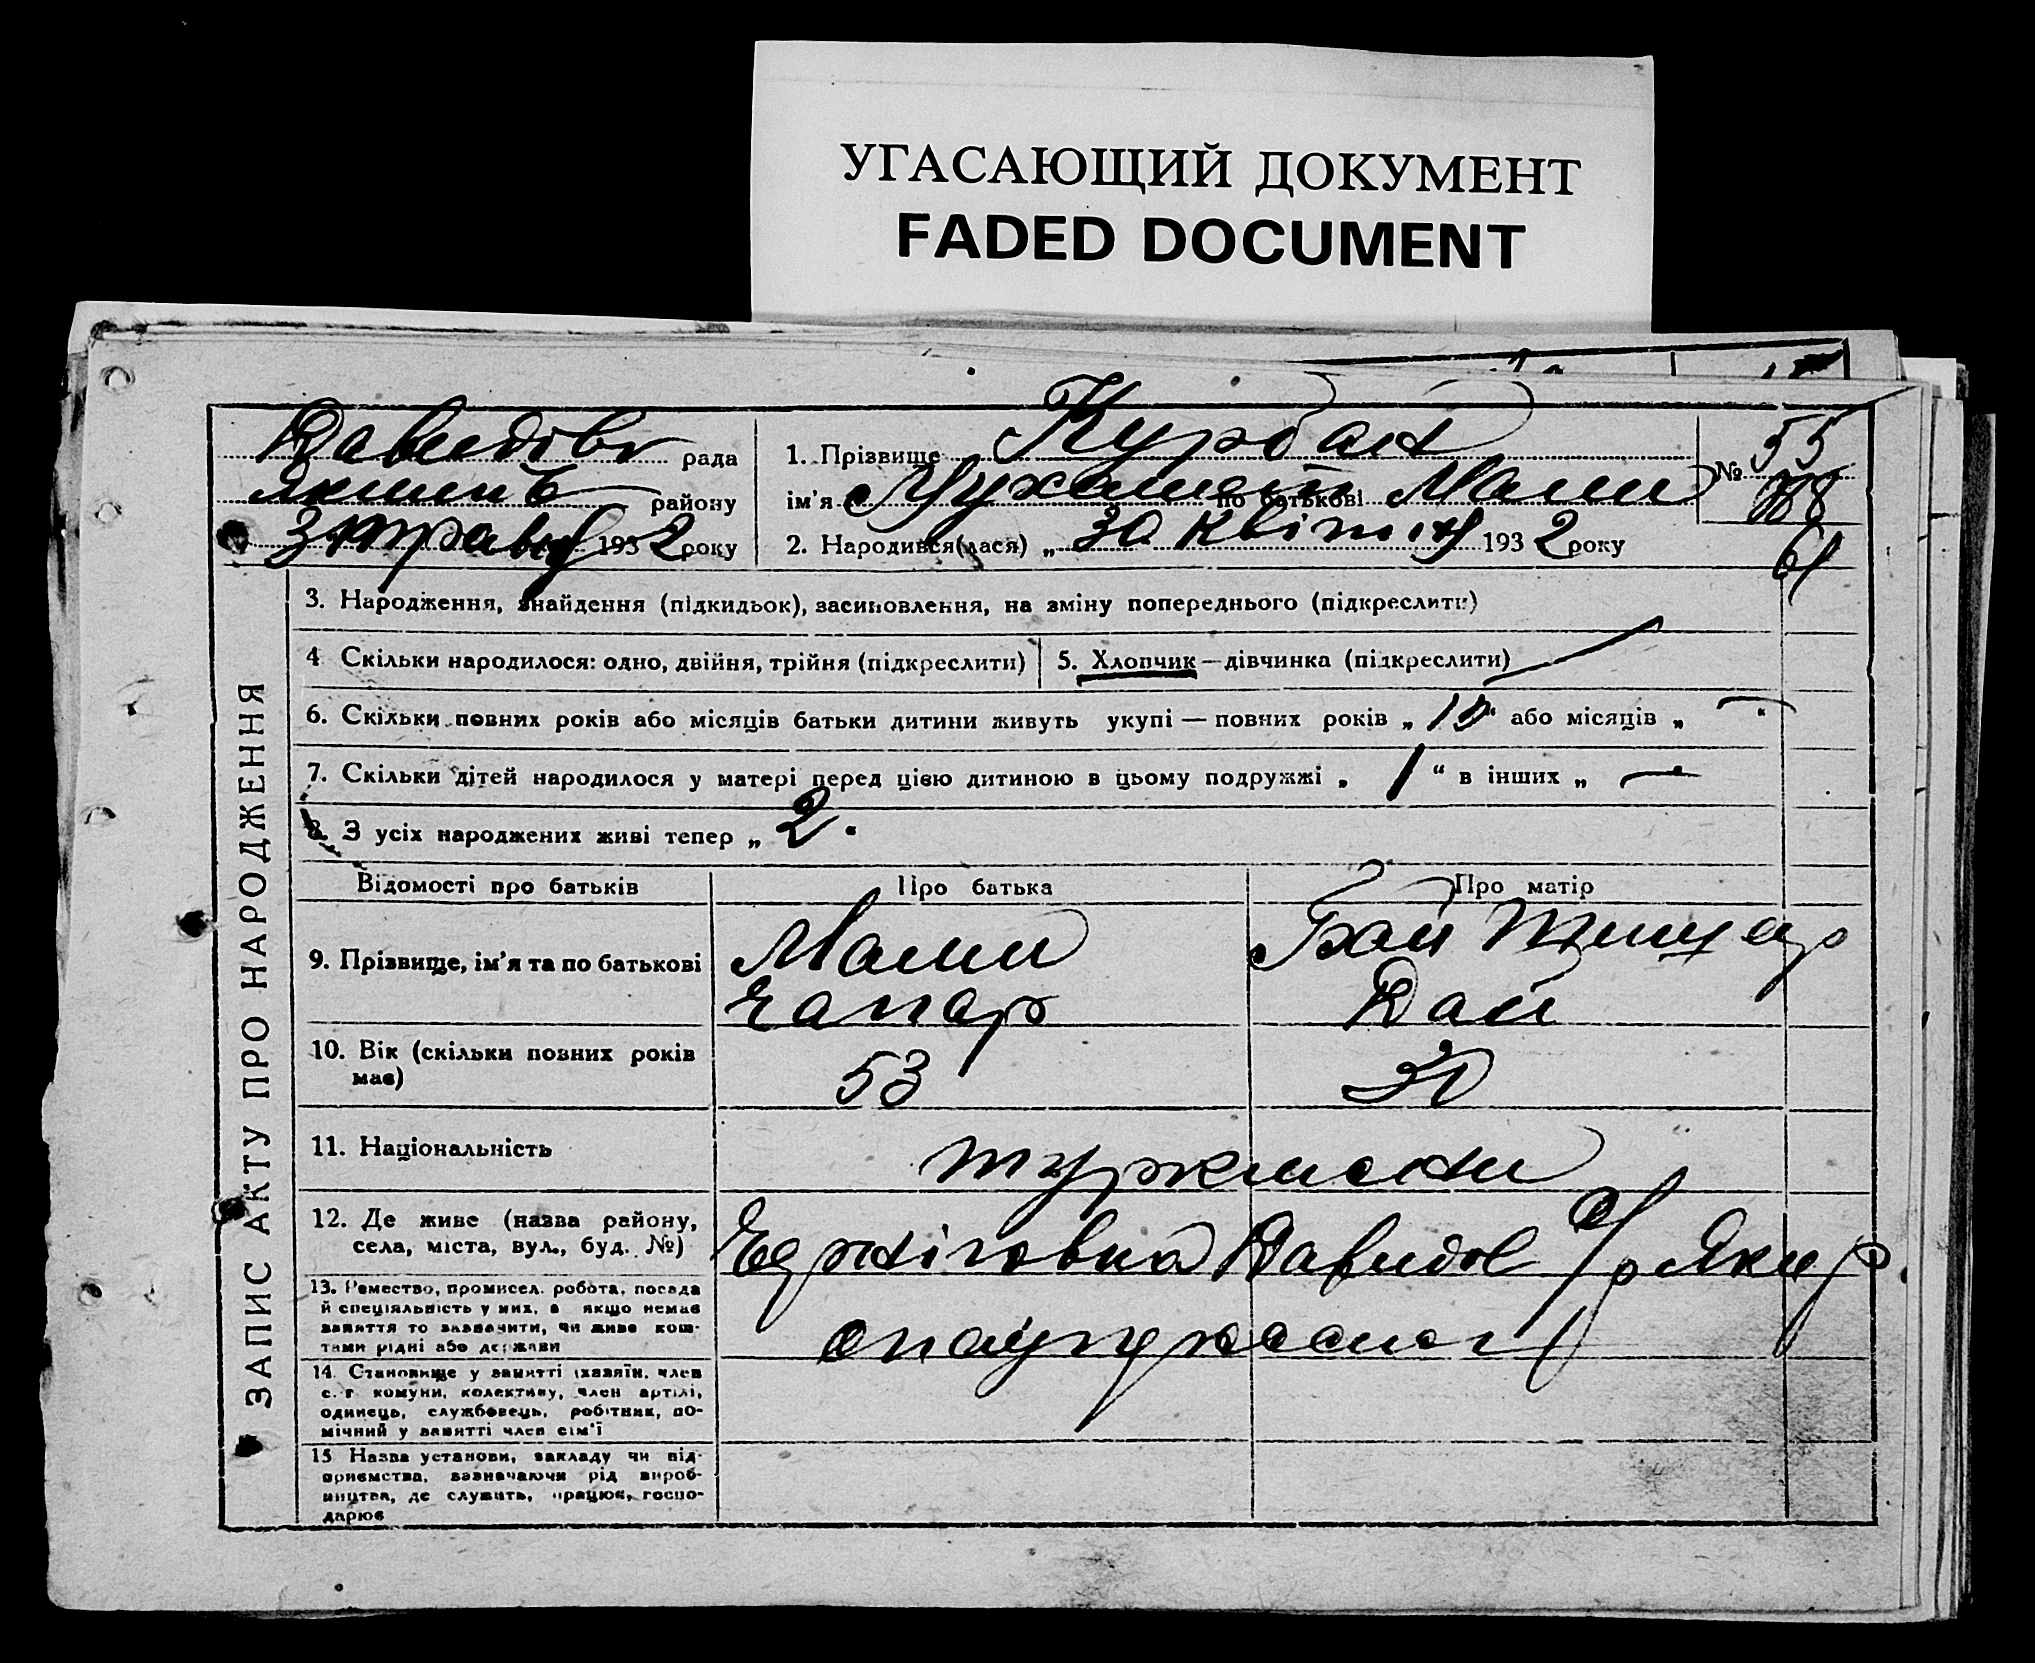 УГАСАЮЩИЙ ДОКУМЕНТ
FADED DOCUMENT
Давидовс рада
району
3 травня 1932 року
1. Прізвище Курбан
ім'я по батькові Мами
2. Народився(лася) „ 30 квітня 1932 року
№ 55
61
3. Народження, знайдення (підкидьок), засиновлення, на зміну попереднього (підкреслити)
4 Скільки народилося: одно, двійня, трійня (підкреслити)
5. Хлопчик—дівчинка (підкреслити)
6. Скільки повних років або місяців батьки дитини живуть укупі — повних років „ “ або місяців „ — “
7. Скільки дітей народилося у матері перед цією дитиною в цьому подружжі „ 1 “ в інших „ —
8. З усіх народжених живі тепер „ 2.
Відомості про батьків
Про батька
Про матір
9. Прізвище, ім'я та по батькові
Мами
Чапар
Бай
Дай
10. Вік (скільки повних років має)
53
30
11. Національність
туркмени
12. Де живе (назва району, села, міста, вул., буд. №)
Давидов с/р Якир
13. Ремество, промисел, робота, посада
й спеціяльність у них, а якщо немає
заняття то зазначити, чи живе кош-
тами рідні або держави
14. Становище у занятті (хазяїн, член
с.-г. комуни, колективу, член артілі,
одинець, службовець, робітник, по-
мічний у занятті член сім'ї
15 Назва установи, закладу чи під-
приємства, зазначаючи рід вироб-
ництва, де служить, працює, госпо-
дарює
ЗАПИС АКТУ ПРО НАРОДЖЕННЯ